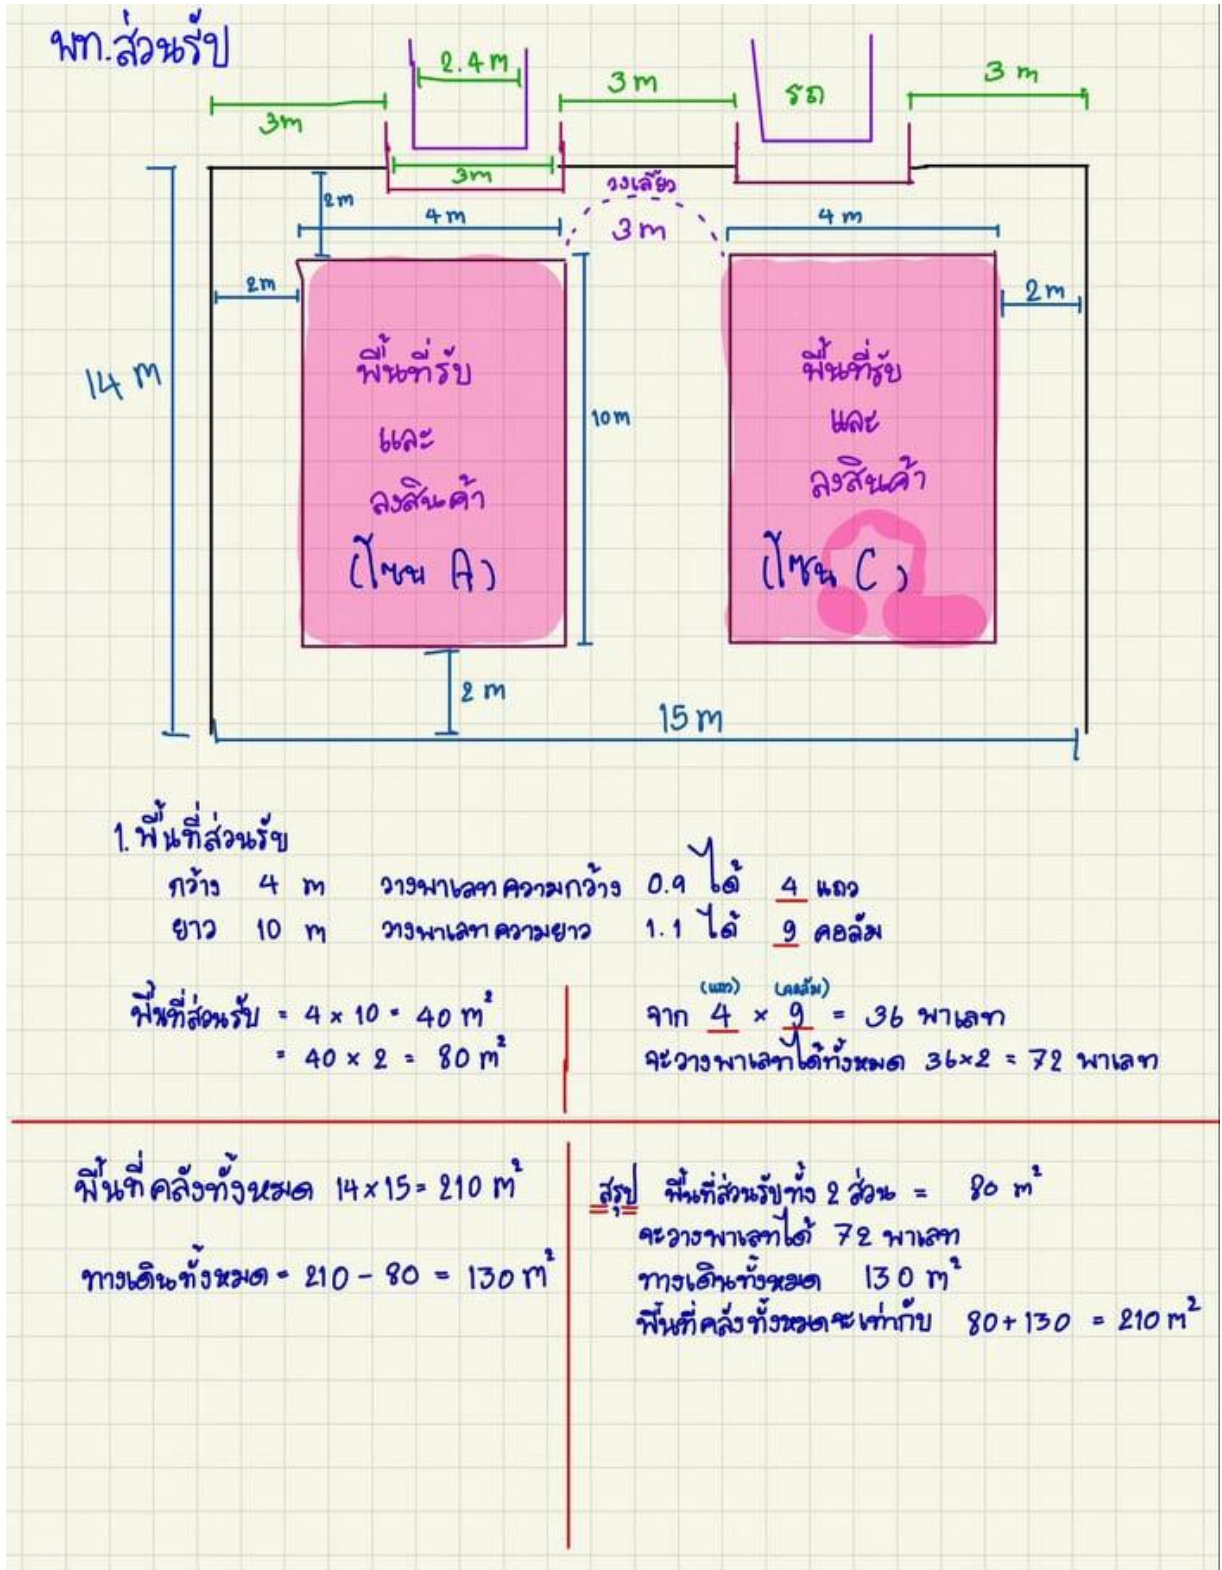 พท.ส่วนรับ
2.4 m
3 m
รถ
3 m
3m
3m
2m
วงเลี้ยว
4 m
3 m
4 m
2m
2 m
14 m
พื้นที่รับ
และ
ลงสินค้า
(โซน A)
10 m
พื้นที่รับ
และ
ลงสินค้า
(โซน C)
2 m
15 m
1. พื้นที่ส่วนรับ
กว้าง 4 m วางพาเลทความกว้าง 0.9 ได้ 4 แถว
ยาว 10 m วางพาเลทความยาว 1.1 ได้ 9 คอลัม
พื้นที่ส่วนรับ = 4 × 10 = 40 m²
= 40 × 2 = 80 m²
(แถว) (คอลัม)
จาก 4 × 9 = 36 พาเลท
จะวางพาเลทได้ทั้งหมด 36×2 = 72 พาเลท
พื้นที่คลังทั้งหมด 14×15 = 210 m²
ทางเดินทั้งหมด = 210 - 80 = 130 m²
สรุป พื้นที่ส่วนรับทั้ง 2 ส่วน = 80 m²
จะวางพาเลทได้ 72 พาเลท
ทางเดินทั้งหมด 130 m²
พื้นที่คลังทั้งหมดจะเท่ากับ 80+130 = 210 m²